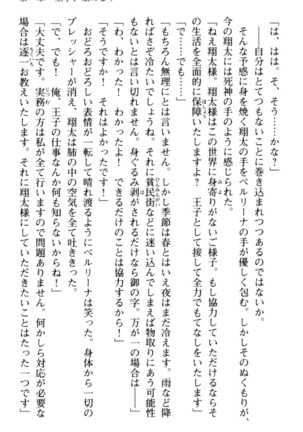 「は、はは。そ、そう……かな？」
――自分はとてつもないことに巻き込まれつつあるのではないか。
そんな予感に身を焼く翔太の手をベルリーナの手が優しく包む。しかしそのぬくもりが、
今の翔太には死神の手のように感じられた。
「ねえ翔太様。翔太様はこの世界に身寄りがないご様子。もし協力していただけるならそ
の生活を全面的に保障いたしますよ？　王子として接して全力でもてなします」
「で……でも……」
「もちろん無理にとは言いません。しかし季節は春とはいえ夜はまだ冷えます。雨など降
ればさぞ冷たいでしょうね。それに貧民街などに迷い込んでしまえば物取りにあう可能性
もないとは言い切れません。身ぐるみ剥がされるだけならば御の字。万が一の場合は――」
「わ、わかった！　わかったよ！　できるだけのことは協力するから！」
「そうですか！　それはよかったです！」
おどろおどろしい表情が一転して晴れ渡るようにベルリーナは笑った。身体から一切の
プレッシャーが消え、翔太は肺の中の空気を全て吐ききった。
「で、でも！　俺、王子の仕事なんか何も知らないからね！」
「大丈夫です。実務の方は私が全て行いますので問題ありません。何かしら対応が必要な
場合は逐一お教えいたします。それに翔太様にしていただきたいことはたった一つです」